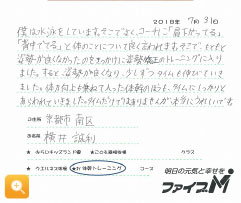 2018年 7月31日
僕は水泳をしています。そこでよく、コーチに「肩下がってる」
「背中でてる」と体のことについて良く言われます。そこで、もともと
姿勢が良くなかったのをきっかけに姿勢矯正のトレーニングに入り
ました。すると、姿勢が良くなり、少しずつタイムも伸びていき
ました。体力向上も兼ねて入った体幹のほうも、タイムにしっかりと
あらわれていきました。タイムだけではありませんが本当にうれしいです。
ご住所 京都市 南区
お名前 横井 誠利
★ みらいキッズランド園 ★こころ鍼接骨院 ★ クラス
★ ウエルネス市場 ★DV体幹トレーニング コース
明日の元気と幸せを
ファイブM